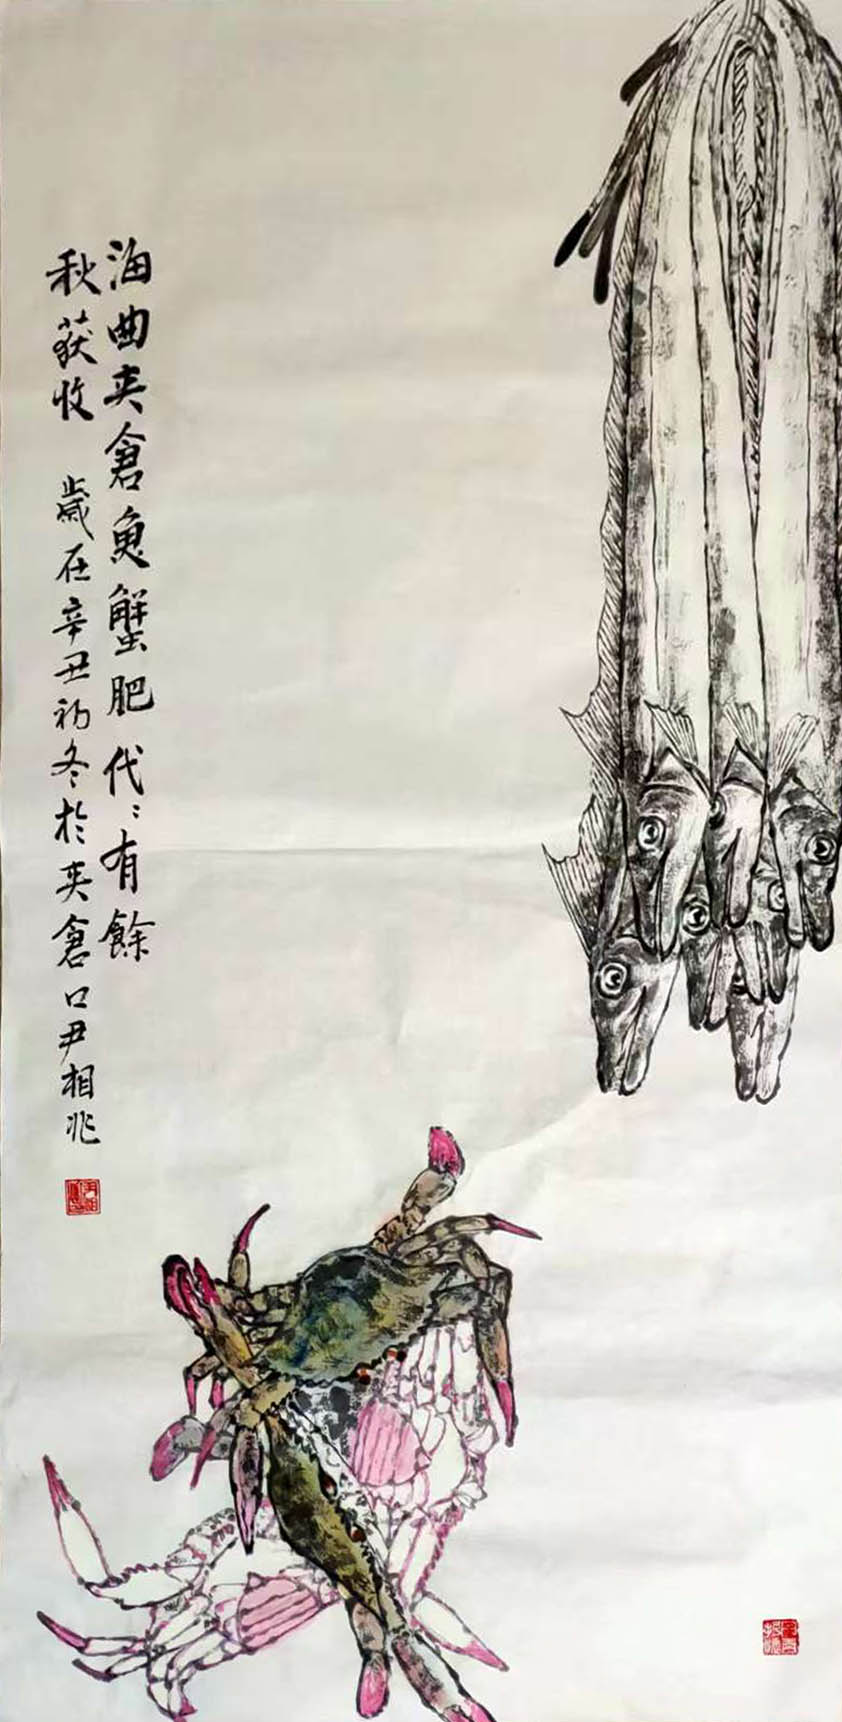 海曲夹倉魚蟹肥代〻有餘
秋获收 歲在辛丑初冬於夹倉口尹相兆